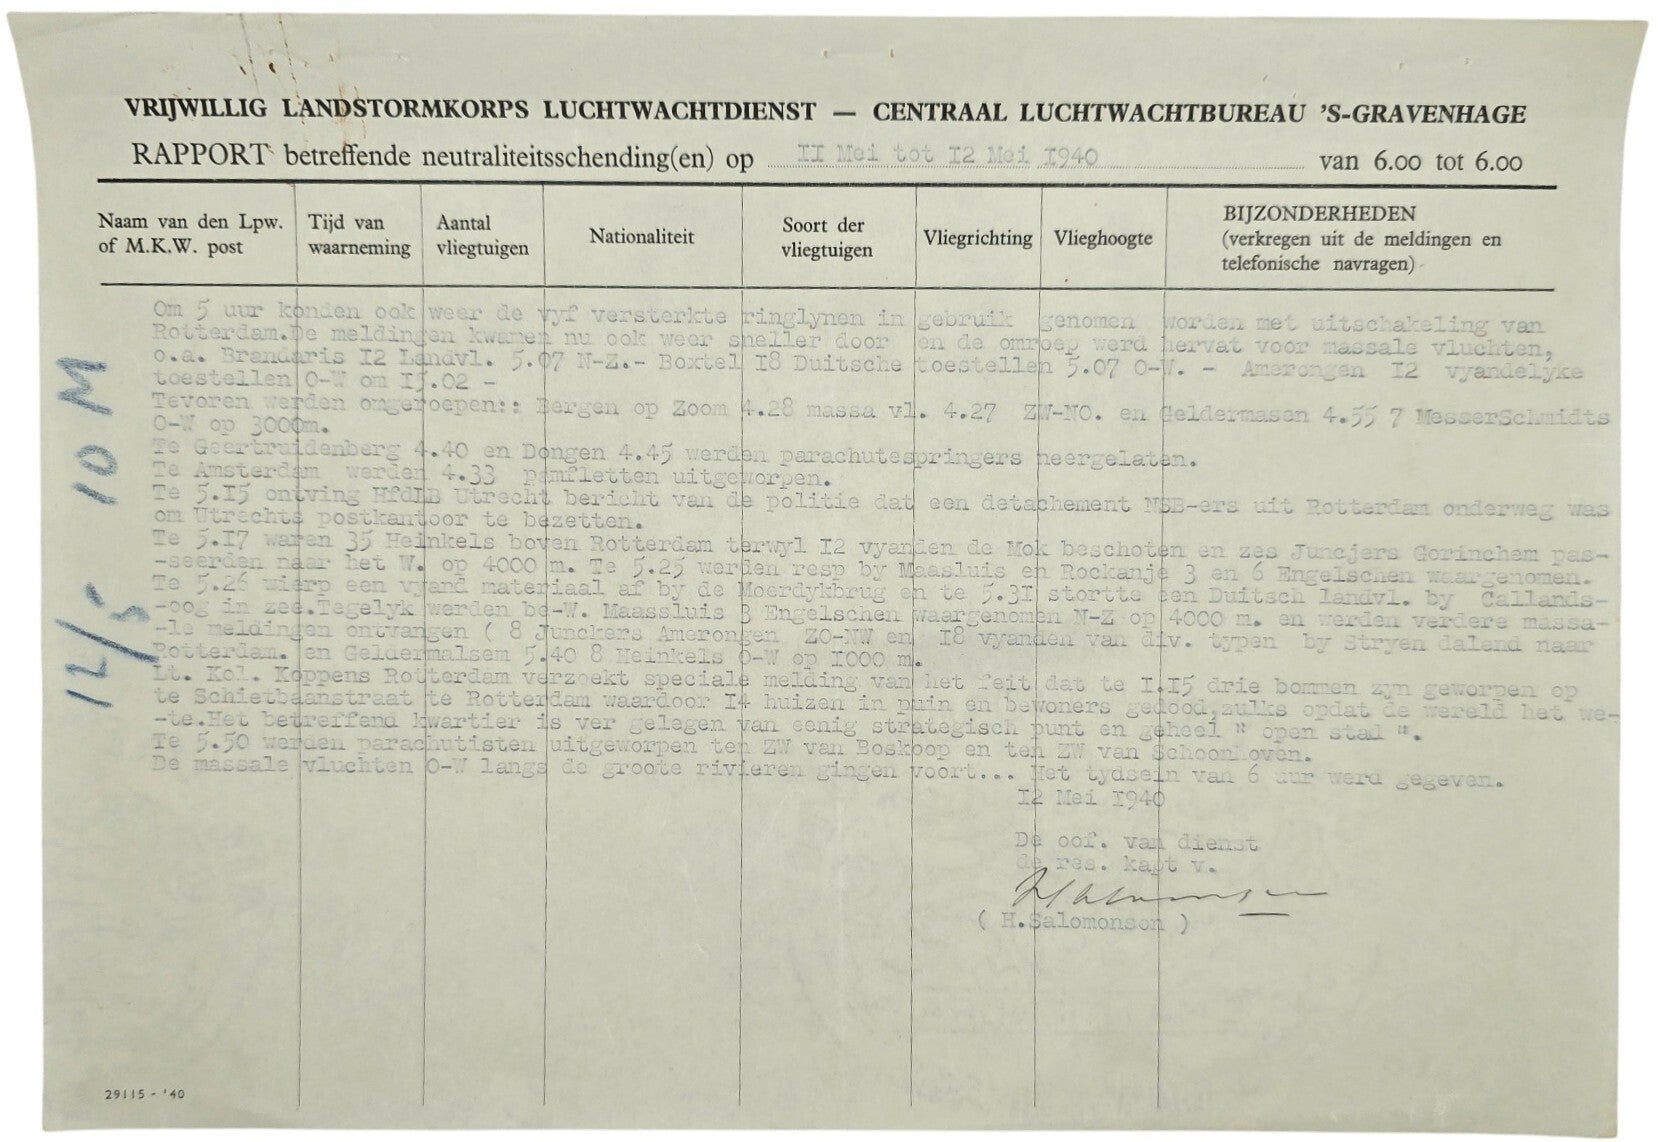 VRIJWILLIG LANDSTORMKORPS LUCHTWACHTDIENST — CENTRAAL LUCHTWACHTBUREAU 'S-GRAVENHAGE
RAPPORT betreffende neutraliteitsschending(en) op II Mei tot I2 Mei I940 van 6.00 tot 6.00
Naam van den Lpw. of M.K.W. post
Tijd van waarneming
Aantal vliegtuigen
Nationaliteit
Soort der vliegtuigen
Vliegrichting
Vlieghoogte
BIJZONDERHEDEN (verkregen uit de meldingen en telefonische navragen)
Om 5 uur konden ook weer de vyf versterkte ringlynen in gebruik genomen worden met uitschakeling van
Rotterdam.De meldingen kwamen nu ook weer sneller door en de omroep werd hervat voor massale vluchten,
o.a. Brandaris I2 Landvl. 5.07 N-Z.- Boxtel I8 Duitsche toestellen 5.07 O-W. - Amerongen I2 vyandelyke
toestellen O-W om I5.02 -
Tevoren werden omgeroepen:: Bergen op Zoom 4.28 massa vl. 4.27 ZW-NO. en Geldermason 4.55 7 MesserSchmidts
O-W op 3000m.
Te Geertruidenberg 4.40 en Dongen 4.45 werden parachutespringers neergelaten.
Te Amsterdam werden 4.33 pamfletten uitgeworpen.
Te 5.I5 ontving HfdLB Utrecht bericht van de politie dat een detachement NSB-ers uit Rotterdam onderweg was
om Utrechts postkantoor te bezetten.
Te 5.I7 waren 35 Heinkels boven Rotterdam terwyl I2 vyanden de Mok beschoten en zes Juncjers Gorinchem pas-
-seerden naar het W. op 4000 m. Te 5.25 werden resp by Maasluis en Rockanje 3 en 6 Engelschen waargenomen.
Te 5.26 wierp een vyand materiaal af by de Moerdykbrug en te 5.3I stortte een Duitsch landvl. by Callands-
-oog in zee.Tegelyk werden be-W. Maassluis 3 Engelschen waargenomen N-Z op 4000 m. en werden verdere massa-
-le meldingen ontvangen ( 8 Junckers Amerongen ZO-NW en I8 vyanden van div. typen by Stryen dalend naar
Rotterdam. en Geldermalsem 5.40 8 Heinkels O-W op I000 m.
Lt. Kol. Koppens Rotterdam verzoekt speciale melding van het feit dat te I.I5 drie bommen zyn geworpen op
te Schietbaanstraat te Rotterdam waardoor I4 huizen in puin en bewoners gedood,zulks opdat de wereld het we-
-te.Het betreffend kwartier is ver gelegen van eenig strategisch punt en geheel " open stad ".
Te 5.50 werden parachutisten uitgeworpen ten ZW van Boskoop en ten ZW van Schoonhoven.
De massale vluchten O-W langs de groote rivieren gingen voort... Het tydsein van 6 uur werd gegeven.
I2 Mei I940
De oof. van dienst
de res. kapt v.
( H.Salomonson )
12/5 10 M
29115 - '40